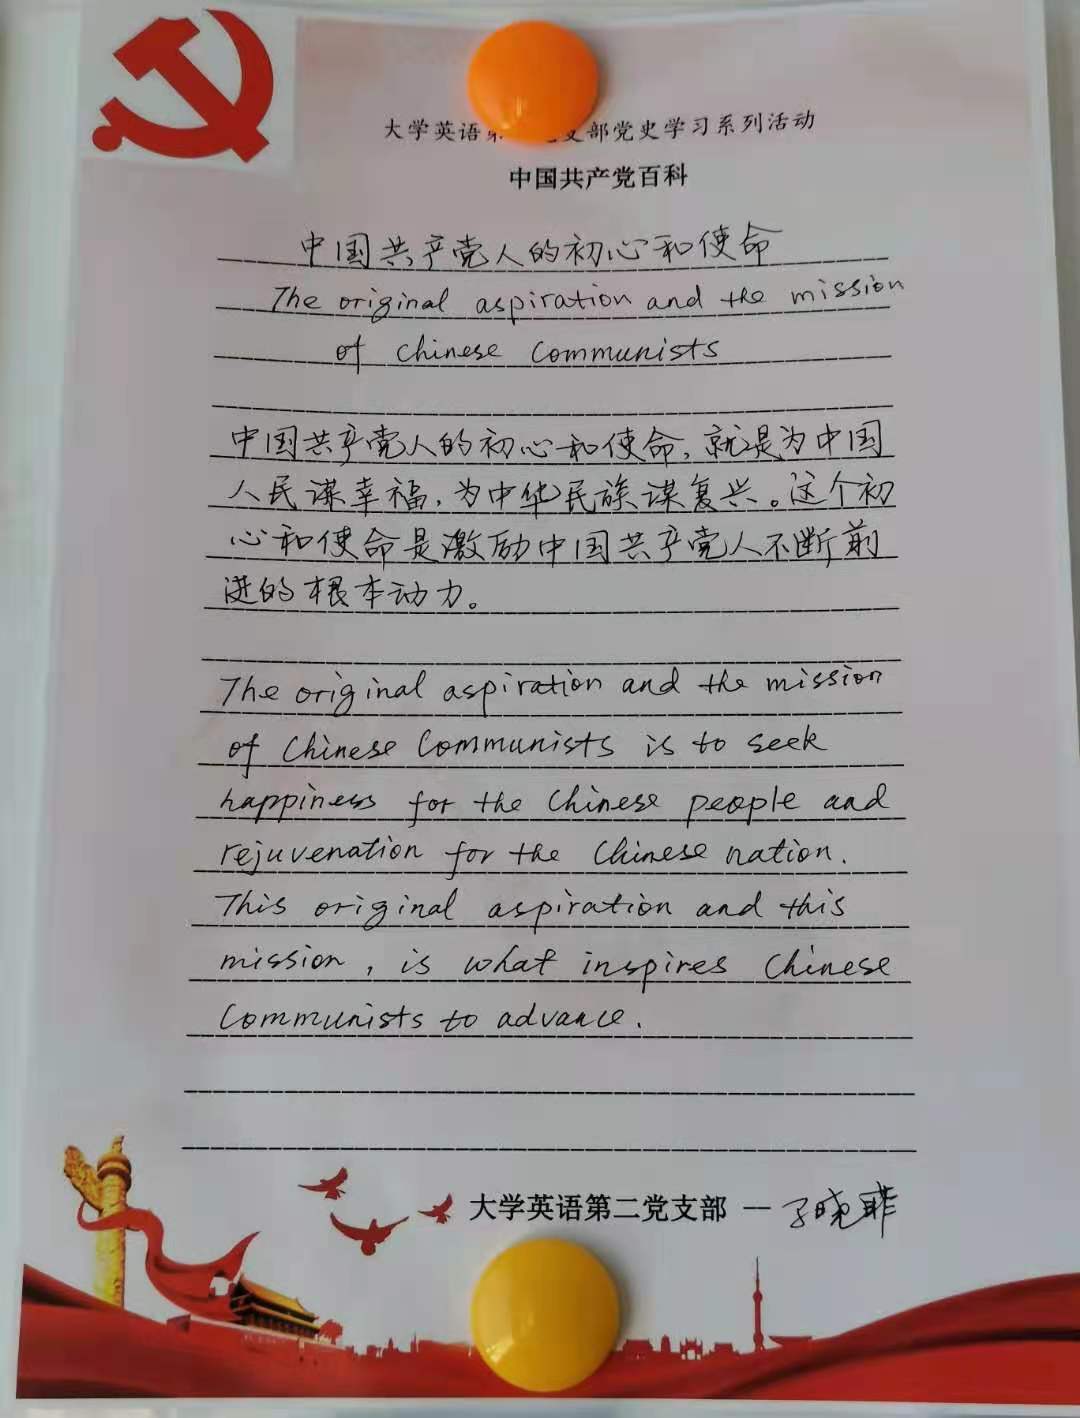 大学英语第 支部党史学习系列活动
中国共产党百科
中国共产党人的初心和使命
The original aspiration and the mission
of Chinese Communists
中国共产党人的初心和使命,就是为中国
人民谋幸福,为中华民族谋复兴。这个初
心和使命是激励中国共产党人不断前
进的根本动力。
The original aspiration and the mission
of Chinese Communists is to seek
happiness for the Chinese people and
rejuvenation for the Chinese nation.
This original aspiration and this
mission, is what inspires Chinese
Communists to advance.
大学英语第二党支部 — 晓菲